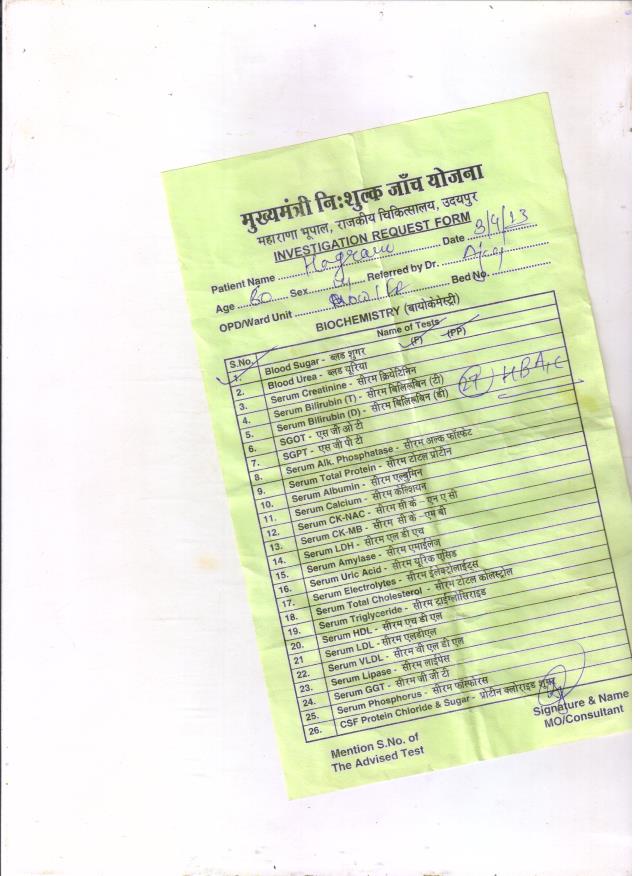 मुख्यमंत्री निःशुल्क जाँच योजना
महाराणा भूपाल, राजकीय चिकित्सालय, उदयपुर
INVESTIGATION REQUEST FORM
Patient Name Date 3/9/13
Age 60 Sex Referred by Dr.
OPD/Ward Unit Bed No.
BIOCHEMISTRY (बायोकेमेस्ट्री)
S.No. Name of Tests
1. Blood Sugar - ब्लड शुगर (F) (PP)
2. Blood Urea - ब्लड यूरिया
3. Serum Creatinine - सीरम क्रियेटिनिन
4. Serum Bilirubin (T) - सीरम बिलिरूबिन (टी)
5. Serum Bilirubin (D) - सीरम बिलिरूबिन (डी)
HBA1C
6. SGOT - एस जी ओ टी
7. SGPT - एस जी पी टी
8. Serum Alk. Phosphatase - सीरम अल्क फॉस्फेट
9. Serum Total Protein - सीरम टोटल प्रोटीन
10. Serum Albumin - सीरम एल्बुमिन
11. Serum Calcium - सीरम केल्शियन
12. Serum CK-NAC - सीरम सी के - एन ए सी
13. Serum CK-MB - सीरम सी के - एम बी
14. Serum LDH - सीरम एल डी एच
15. Serum Amylase - सीरम एमाईलेज
16. Serum Uric Acid - सीरम यूरिक एसिड
17. Serum Electrolytes - सीरम ईलेक्ट्रोलाईट्स
18. Serum Total Cholesterol - सीरम टोटल कोलस्ट्रोल
19. Serum Triglyceride - सीरम ट्राईग्लोसिराइड
20. Serum HDL - सीरम एच डी एल
21 Serum LDL - सीरम एलडीएल
22. Serum VLDL - सीरम वी एल डी एल
23. Serum Lipase - सीरम लाईपेस
24. Serum GGT - सीरम जी जी टी
25. Serum Phosphorus - सीरम फॉस्फोरस
26. CSF Protein Chloride & Sugar - प्रोटीन क्लोराइड शुगर
Mention S.No. of
The Advised Test
Signature & Name
MO/Consultant